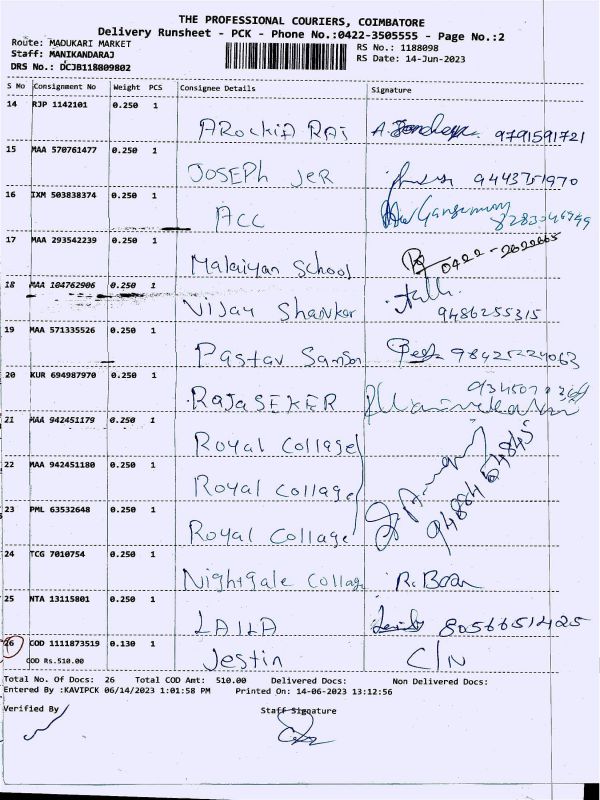 THE PROFESSIONAL COURIERS, COIMBATORE
Delivery Runsheet - PCK - Phone No.:0422-3505555 - Page No.:2
Route: MADUKARI MARKET RS No.: 1188098
Staff: MANIKANDARAJ RS Date: 14-Jun-2023
DRS No.: DCJB118809802
S No Consignment No Weight PCS Consignee Details Signature
14 RJP 1142101 0.250 1
AROCKIA RAJ A. 9791591721
15 MAA 570761477 0.250 1
JOSEPH JER 9443751970
16 IXM 503838374 0.250 1
ACC 8283046949
17 MAA 293542239 0.250 1
Malaiyan School 0422-2622665
18 MAA 104762906 0.250 1
Vijay Shankar 9486255315
19 MAA 571335526 0.250 1
Pastav Samson
20 KUR 694987970 0.250 1
RAJASEKER
21 MAA 942451179 0.250 1
Royal Collage
22 MAA 942451180 0.250 1
Royal Collage
23 PML 63532648 0.250 1
Royal Collage
24 TCG 7010754 0.250 1
Nightgale Collage R.
25 NTA 13115801 0.250 1
LAILA 8056651425
26 COD 1111873519 0.130 1
COD Rs.510.00 Jestin C/N
Total No. Of Docs: 26 Total COD Amt: 510.00 Delivered Docs: Non Delivered Docs:
Entered By :KAVIPCK 06/14/2023 1:01:58 PM Printed On: 14-06-2023 13:12:56
Verified By Staff Signature